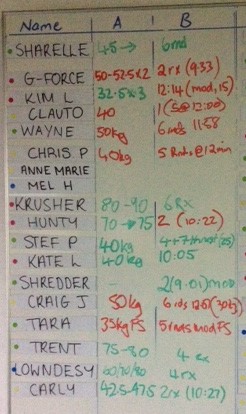 Name A B
SHARELLE 45→ 6rnd
G-FORCE 50-52.5x2 2rx (9.33)
KIM L 32.5x3 12:14 (mod, 15)
CLAUTO 40 1 (5@12:00)
WAYNE 50kg 6rds 11:58
CHRIS P 40kg 5 Rnds @12min
ANNE MARIE
MEL H
KRUSHER 80-90 6Rx
HUNTY 70→75 2 (10:22)
STEF P 40kg 4+7
KATE L 40kg 10:05
SHREDDER - 2(9.01)mod
CRAIG J 80kg 6rds
TARA 35kg FS 5rnds mod FS
TRENT 75-80 4rx
LOWNDESY 60/70/80 4rx
CARLY 42.5-47.5 2rx (10:27)